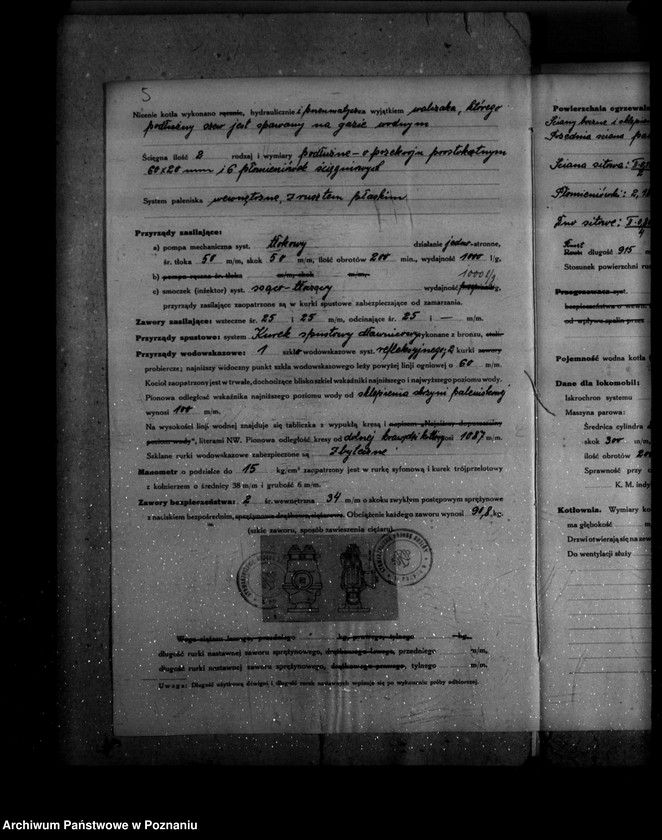 5
Nicenie kotła wykonano ręcznie, hydraulicznie i pneumatycz z wyjątkiem walczaka, którego
podłużny szew jest spawany na gazie wodnym
Ścięgna ilość 2 rodzaj i wymiary podłużne – o przekroju prostokątnym
60x20 mm i 6 płomieniówek ścięgnowych
System paleniska wewnętrzne, z rusztem płaskim
Przyrządy zasilające:
a) pompa mechaniczna syst. tłokowy działanie jedno-stronne,
śr. tłoka 50 m/m, skok 50 m/m, ilość obrotów 200 min., wydajność 1000 l/g,
b) pompa ręczna śr. tłoka m/m, skok m/m. 1000 l/g
c) smoczek (inżektor) syst. ssąco-tłoczący wydajność g,
przyrządy zasilające zaopatrzone są w kurki spustowe zabezpieczające od zamarzania.
Zawory zasilające: wsteczne śr. 25 i 25 m/m, odcinające śr. 25 i — m/m.
Przyrządy spustowe: system Kurek spustowy dławnicowy wykonane z bronzu,
Przyrządy wodowskazowe: 1 szkło wodowskazowe syst. refleksyjnego; 2 kurki
probiercze; najniższy widoczny punkt szkła wodowskazowego leży powyżej linji ogniowej o 60 m/m.
Kocioł zaopatrzony jest w trwałe, dochodzące blisko szkieł wskaźniki najniższego i najwyższego poziomu wody.
Pionowa odległość wskaźnika najniższego poziomu wody od sklepienia skrzyni paleniskowej
wynosi 100 m/m.
Na wysokości linji wodnej znajduje się tabliczka z wypukłą kresą i napisem „Najniższy dopuszczalny
poziom wody", literami NW. Pionowa odległość kresy od dolnej krawędzi kotła wynosi 1087 m/m.
Szklane rurki wodowskazowe zabezpieczone są zbyteczne
Manometr o podziałce do 15 kg/cm² zaopatrzony jest w rurkę syfonową i kurek trójprzelotowy
z kołnierzem o średnicy 38 m/m i grubość 6 m/m.
Zawory bezpieczeństwa: 2 śr. wewnętrzna 34 m/m o skoku zwykłym postępowym sprężynowe
z naciskiem bezpośrednim, Obciążenie każdego zaworu wynosi 90,8 kg.
(szkic zaworu, sposób zawieszenia ciężaru)
Waga ciężaru lewego, przedniego kg, prawego, tylnego kg.
długość rurki nastawnej zaworu sprężynowego, drążkowego lewego, przedniego m/m,
długość rurki nastawnej zaworu sprężynowego, drążkowego prawego, tylnego m/m.
Uwaga: Długość użytkową dźwigni i długość rurek nastawnych wpisuje się po wykonaniu próby odbiorczej.
Powierzchnia ogrzewalna
Ściany boczne i sklepienie
Przednia ściana
Ściana sitowa:
Płomieniówki: 2,
Dno sitowe:
Ruszt długość 915 m
Stosunek powierzchni
Przegrzewacz syst.
bezpieczeństwa o wewn.
od wpływu spalin przez
Pojemność wodna kotła
Dane dla lokomobil:
Iskrochron systemu
Maszyna parowa:
Średnica cylindra
skok 300 m/m,
ilość obrotów 20
Sprawność przy
K. M. indy
Kotłownia. Wymiary
ma głębokość m
Drzwi otwierają się na zew
Do wentylacji służy
Archiwum Państwowe w Poznaniu